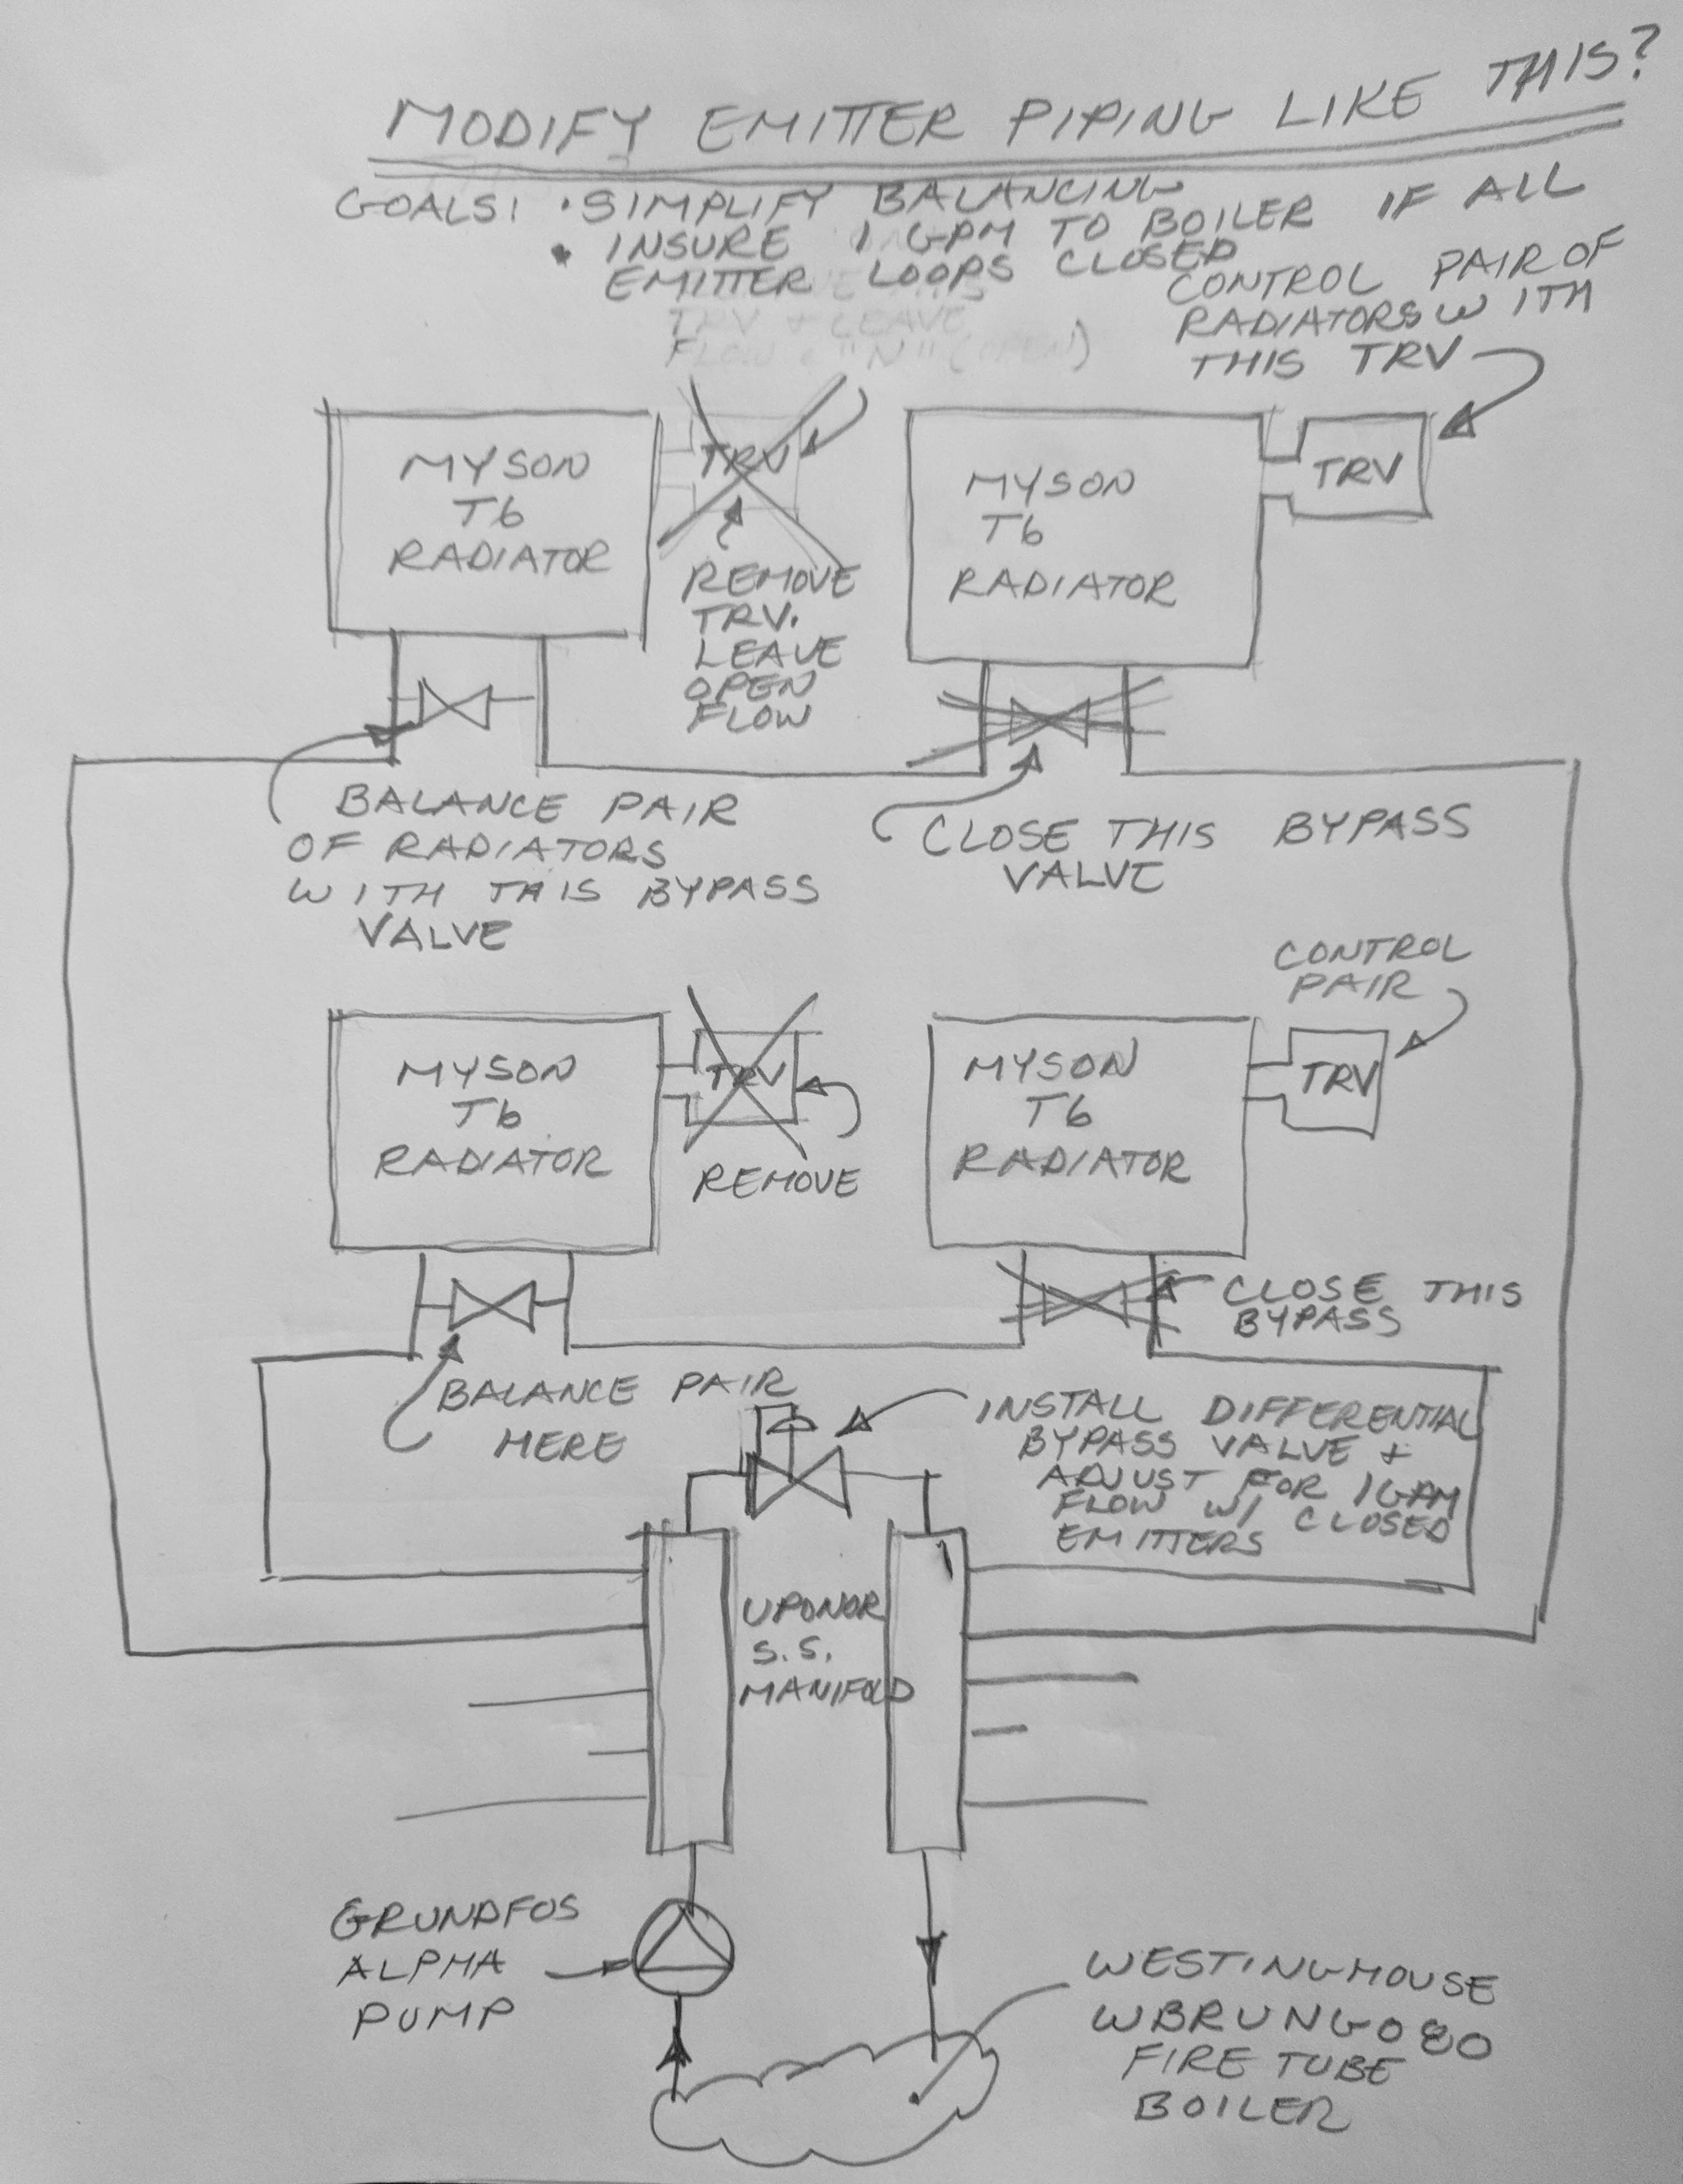 MODIFY EMITTER PIPING LIKE THIS?
GOALS: • SIMPLIFY BALANCING
• INSURE 1 GPM TO BOILER IF ALL
EMITTER LOOPS CLOSED
TRV + LEAVE
FLOW "N" (OPEN)
CONTROL PAIR OF
RADIATORS WITH
THIS TRV
MYSON
T6
RADIATOR
TRV
REMOVE
TRV.
LEAVE
OPEN
FLOW
MYSON
T6
RADIATOR
TRV
BALANCE PAIR
OF RADIATORS
WITH THIS BYPASS
VALVE
CLOSE THIS BYPASS
VALVE
CONTROL
PAIR
MYSON
T6
RADIATOR
TRV
REMOVE
MYSON
T6
RADIATOR
TRV
CLOSE THIS
BYPASS
BALANCE PAIR
HERE
INSTALL DIFFERENTIAL
BYPASS VALVE +
ADJUST FOR 1GPM
FLOW W/ CLOSED
EMITTERS
UPONOR
S.S.
MANIFOLD
GRUNDFOS
ALPHA
PUMP
WESTINGHOUSE
WBRUNG080
FIRE TUBE
BOILER